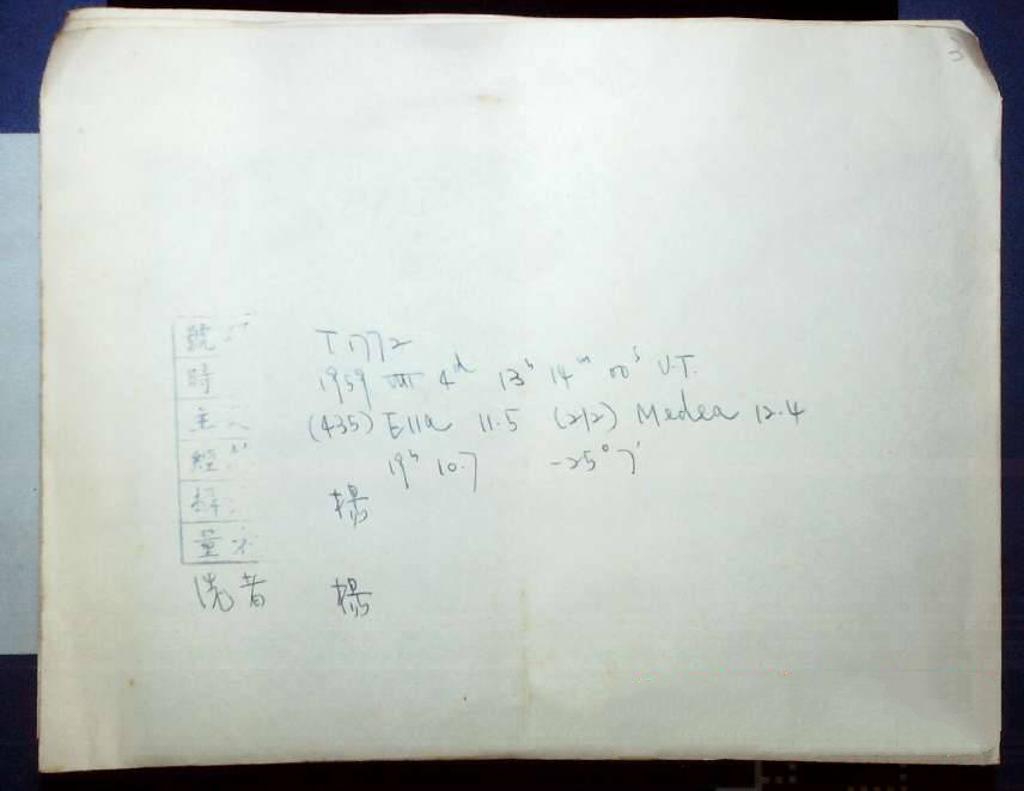 號 T1772
時 1959 VIII 4ᵈ 13ʰ 14ᵐ 00ˢ U.T.
主 (435) Ella 11.5 (212) Medea 12.4
經 19ʰ 10.7 -25° 7'
楊
量
洗者 楊